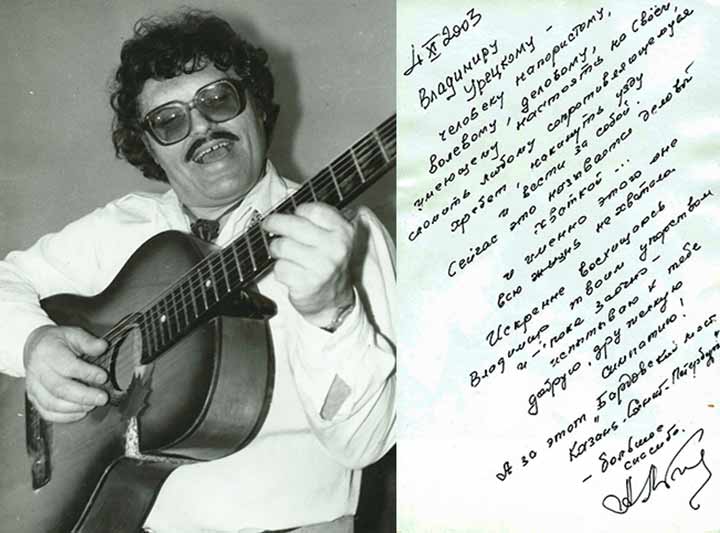 4 XI 2003
Владимиру
Урецкому –
человеку напористому,
волевому, деловому,
умеющему настоять на своём,
сломать любому сопротивляющемуся
хребет, накинуть узду
и вести за собой.
Сейчас это называется деловой
хваткой...
и именно этого мне
всю жизнь не хватало.
Искренне восхищаюсь
Владимир твоим упорством
и – пока заочно –
испытываю к тебе
добрую, дружескую
симпатию!
А за этот "Бардовский мост
Казань - Санкт-Петербург"
– большое
спасибо.